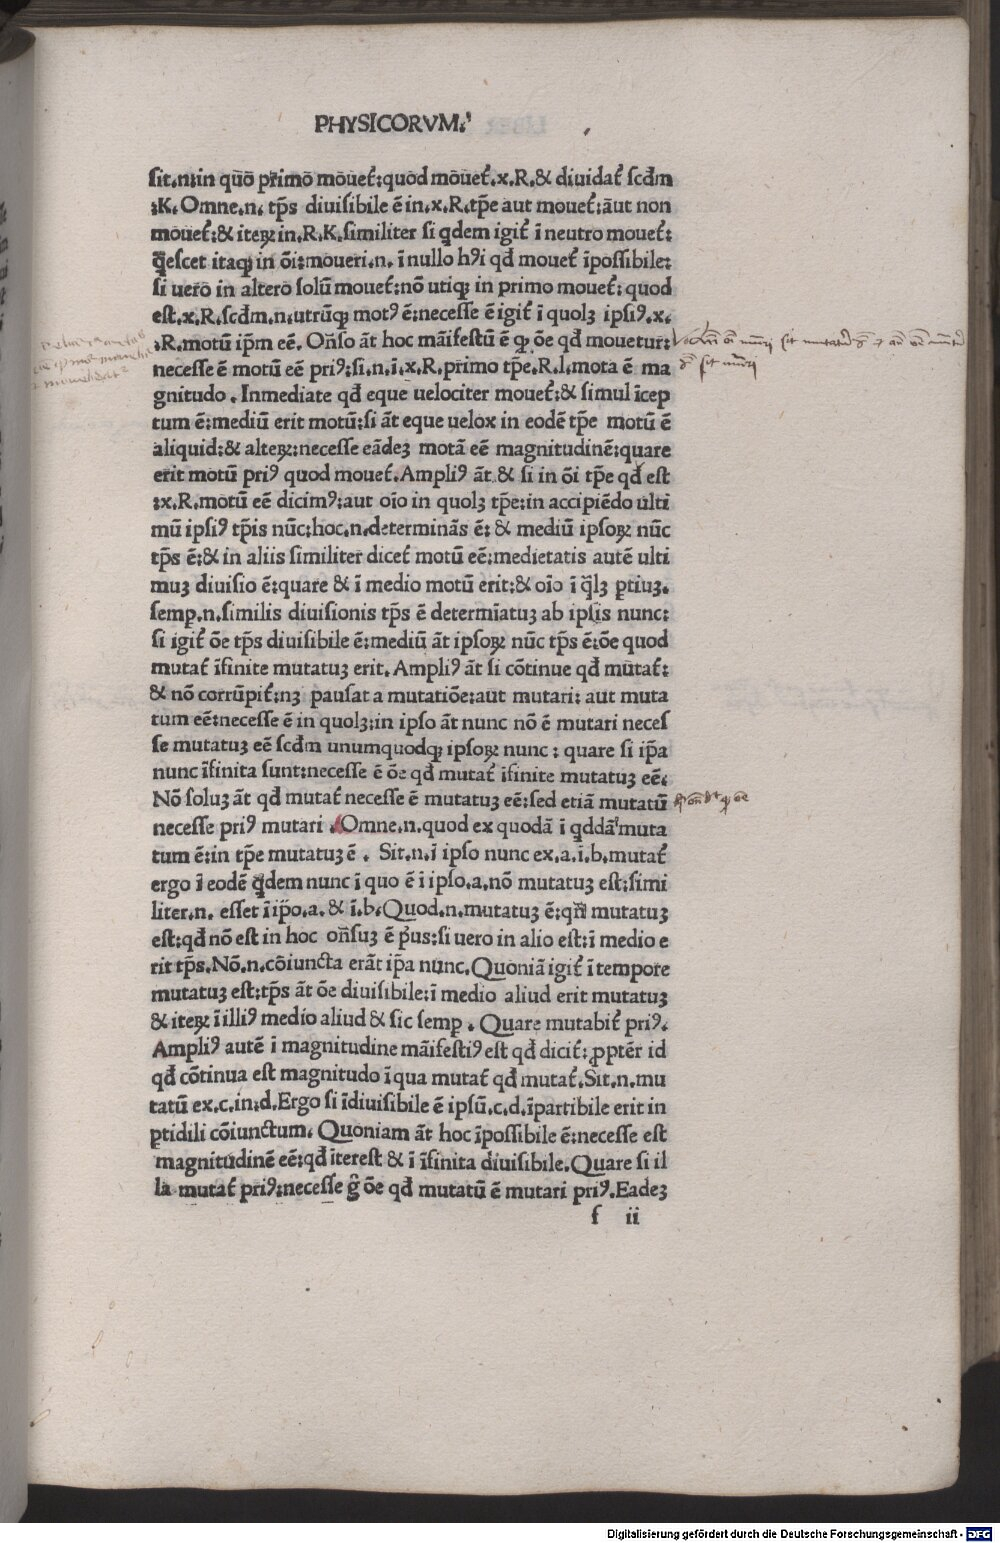 PHYSICORVM.
sit.n:in quō primō mōuet᷑:quod mōuet᷑.x.R.& diuidat᷑ scđm
:K.Omne.n. tp̄s diuisibile ē in.x.R.tp̄e aut mouet᷑:aut non
mouet᷑:& iteꝝ in.R.K.similiter si qdem igit᷑ ī neutro mouet᷑:
q̄escet itaqꝫ in ōi:moueri.n. ī nullo hꝰi qđ mouet᷑ īpossibile:
si uero in altero solū mouet᷑:nō utiqꝫ in primo mouet᷑:quod
est.x.R.scđm.n.utrūqꝫ motꝰ ē:necesse ē igit᷑ ī quolꝫ ipsiꝰ.x.
.R.motū ip̄m eē. Oñso āt hoc māifestū ē qꝫ ōe qđ mouetur:
necesse ē motū eē priꝰ:si.n.ī.x.R.primo tp̄e.R.l.mota ē ma
gnitudo. Inmediate qđ eque uelociter mouet᷑:& simul īcep
tum ē:mediū erit motū:si āt eque uelox in eodē tp̄e motū ē
aliquid:& alteꝝ:necesse eādeꝫ motā eē magnitudinē:quare
erit motū priꝰ quod mouet᷑.Ampliꝰ āt & si in ōi tp̄e qđ est
:x.R.motū eē dicimꝰ:aut oīo in quolꝫ tp̄e:in accipiēdo ulti
mū ipsiꝰ tp̄is nūc:hoc.n.determinās ē: & mediū ipsoꝝ nūc
tp̄s ē:& in aliis similiter dicet᷑ motū eē:medietatis autē ulti
muꝫ diuisio ē:quare & ī medio motū erit:& oīo ī q̄lꝫ ꝑtiuꝫ.
semꝑ.n.similis diuisionis tp̄s ē determīatuꝫ ab ipsis nunc:
si igit᷑ ōe tp̄s diuisibile ē:mediū āt ipsoꝝ nūc tp̄s ē:ōe quod
mutat᷑ īfinite mutatuꝫ erit.Ampliꝰ āt si cōtinue qđ mutat᷑:
& nō corrūpit᷑:nꝫ pausat a mutatiōe:aut mutari: aut muta
tum eē:necesse ē in quolꝫ:in ipso āt nunc nō ē mutari neces
se mutatuꝫ eē scđm unumquodqꝫ ipsoꝝ nunc: quare si ip̄a
nunc īfinita sunt:necesse ē ōe qđ mutat᷑ īfinite mutatuꝫ eē.
Nō soluꝫ āt qđ mutat᷑ necesse ē mutatuꝫ eē:sed etiā mutatū
necesse priꝰ mutari .Omne.n.quod ex quodā ī qddā muta
tum ē:in tp̄e mutatuꝫ ē. Sit.n.ī ipso nunc ex.a.ī.b.mutat᷑
ergo ī eodē q̄dem nunc ī quo ē ī ipso.a.nō mutatuꝫ est:simi
liter.n. esset ī ip̄o.a. & ī.b.Quod.n.mutatuꝫ ē:qñ mutatuꝫ
est:qđ nō est in hoc oñsuꝫ ē prius:si uero in alio est:ī medio e
rit tp̄s.Nō.n.cōiuncta erāt ip̄a nunc.Quoniā igit᷑ ī tempore
mutatuꝫ est:tp̄s āt ōe diuisibile:ī medio aliud erit mutatuꝫ
& iteꝝ ī illiꝰ medio aliud & sic semꝑ. Quare mutabit᷑ priꝰ.
Ampliꝰ autē ī magnitudine māifestiꝰ est qđ dicit᷑: ꝓpter id
qđ cōtinua est magnitudo ī qua mutat᷑ qđ mutat᷑.Sit.n.mu
tatū ex.c.in:d.Ergo si īdiuisibile ē ipsū.c.d.īpartibile erit in
ꝑtidili cōiunctum. Quoniam āt hoc īpossibile ē:necesse est
magnitudinē eē:qđ īterest & ī īfinita diuisibile.Quare si il
la mutat᷑ priꝰ:necesse ḡ ōe qđ mutatū ē mutari priꝰ.Eadeꝫ
f ii
Digitalisierung gefördert durch die Deutsche Forschungsgemeinschaft - DFG